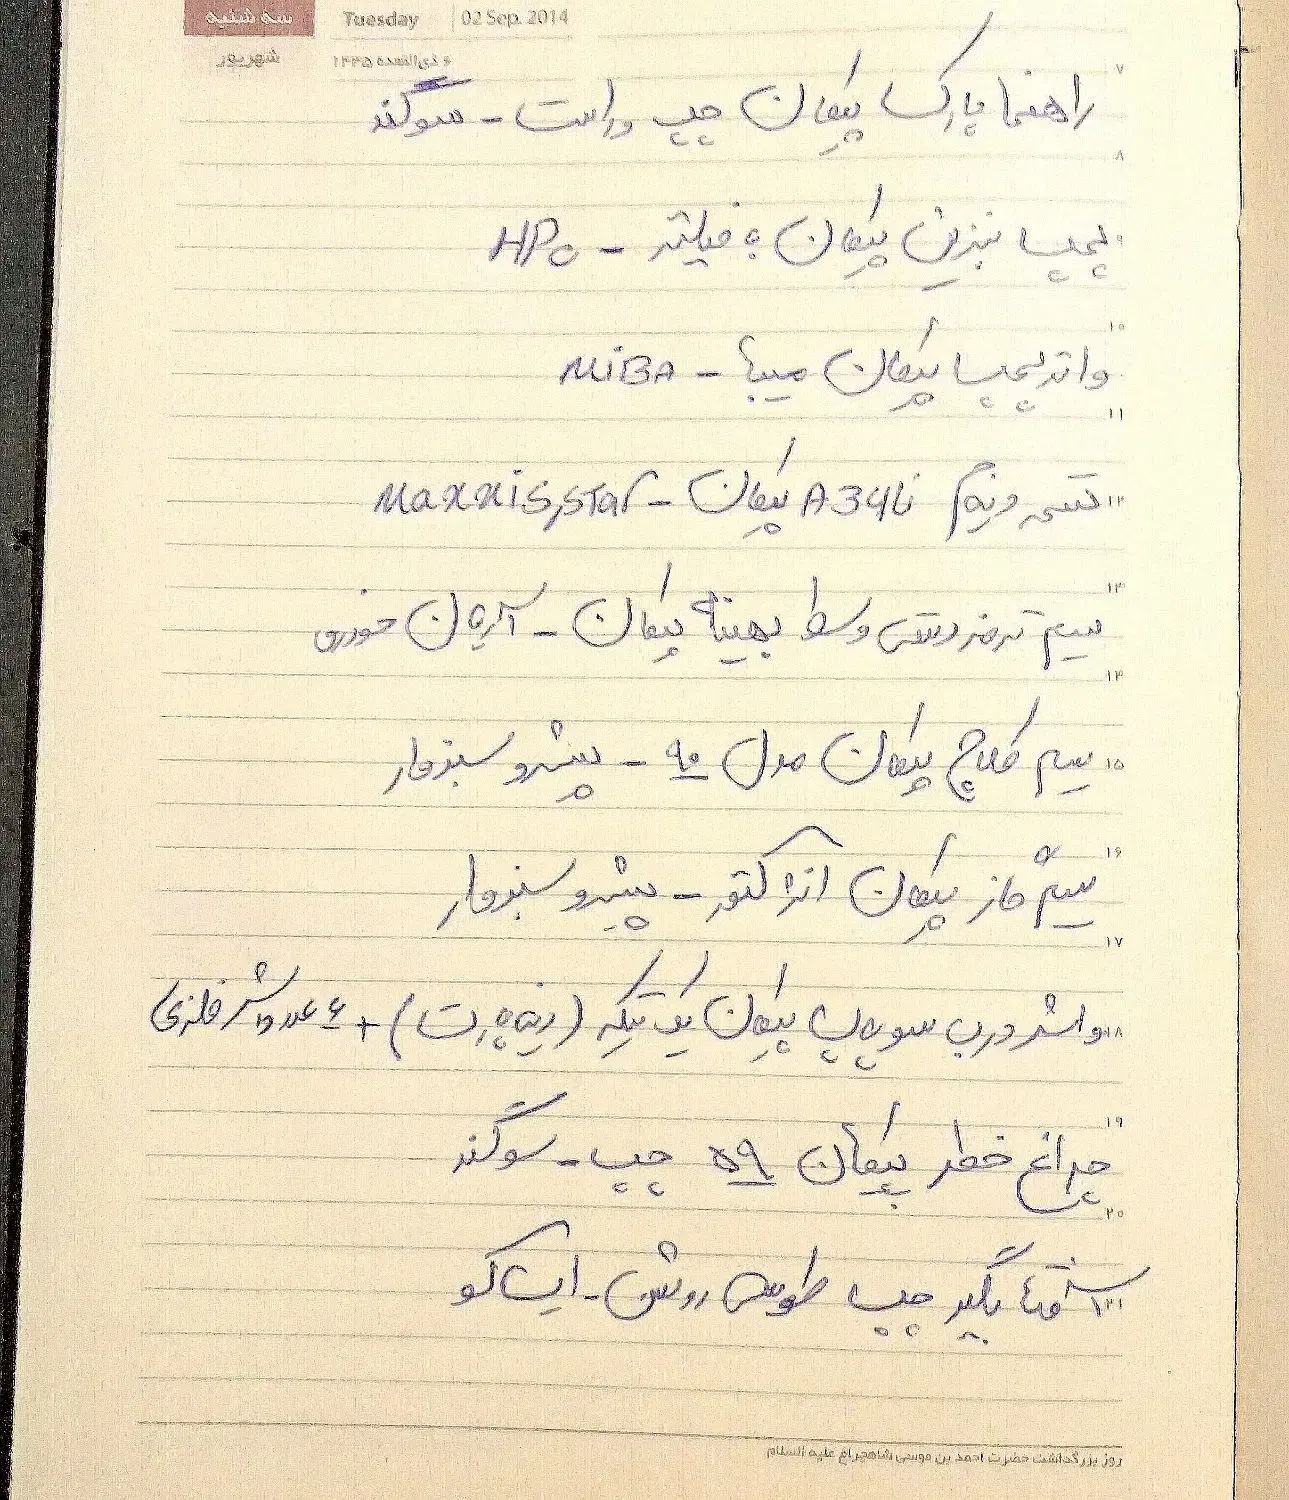 سه شنبه Tuesday 02 Sep. 2014
شهریور ۶ ذی‌القعده ۱۴۳۵
۷
راهنما پارک پیکان چپ و راست - سوگند
۸
۹
پمپ بنزین پیکان با فیلتر - HPO
۱۰
واتر پمپ پیکان میبا - MiBA
۱۱
۱۲
تسمه دینام نازک A34 پیکان - Maxxis,star
۱۳
سیم ترمز دستی وسط بهینه پیکان - آریان خودرو
۱۴
۱۵
سیم کلاچ پیکان مدل ۹۰ - پیشرو سبزوار
۱۶
سیم گاز پیکان انژکتور - پیشرو سبزوار
۱۷
۱۸
واشر درب سوپاپ پیکان یک تیکه (رینه پارت) + ۶ عدد واشر فلزی
۱۹
چراغ خطر پیکان ۵۹ چپ - سوگند
۲۰
۲۱
آفتابگیر چپ طوسی روشن - ایساکو
روز بزرگداشت حضرت احمد بن موسی شاهچراغ علیه السلام